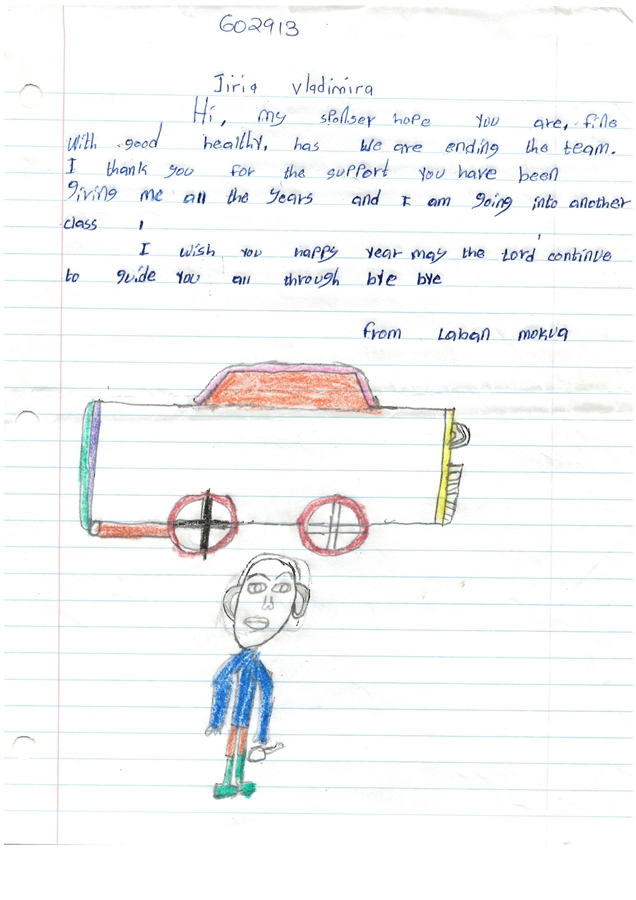 G02913
Jiria Vladimira
Hi, my sponser hope you are, fine
with good healthy, has we are ending the team.
I thank you for the support you have been
giving me all the years and I am going into another
class
I wish you happy year may the Lord continue
to guide you all through bye bye
from Laban mokua